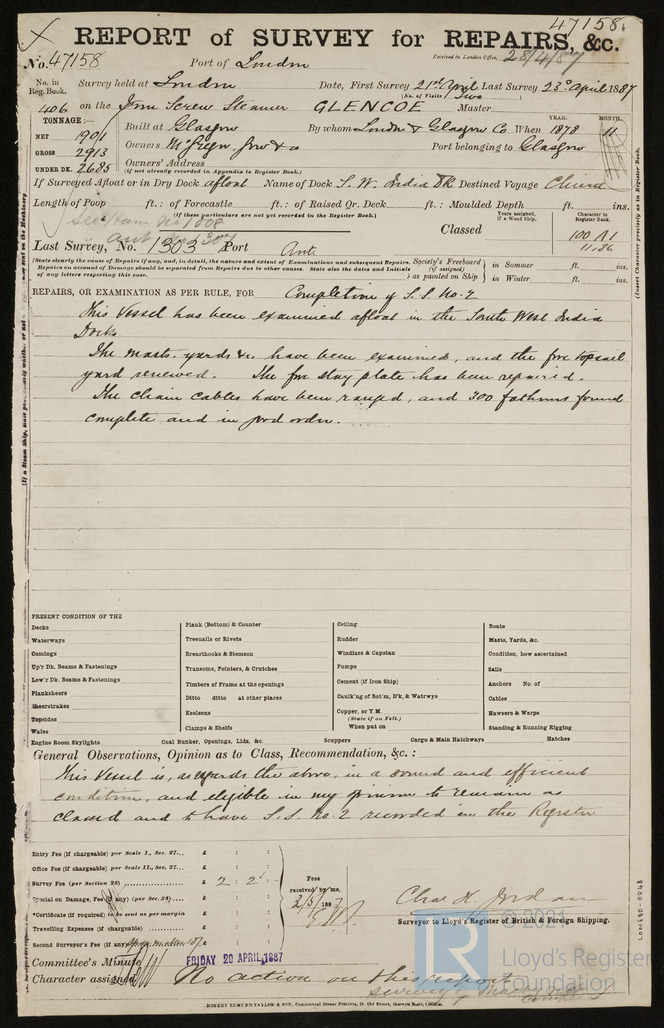 47158.
REPORT of SURVEY for REPAIRS, &c.
No. 47158 Port of London Received in London Office, 28/4/87
No. in Reg. Book. Survey held at London Date, First Survey 21st April Last Survey 23rd April 1887
(No. of Visits Two)
406 on the Iron Screw Steamer GLENCOE Master
TONNAGE:— YEAR. MONTH.
NET 1901 Built at Glasgow By whom London & Glasgow Co When 1878 11
GROSS 2913 Owners McGregor, Gow & Co Port belonging to Glasgow
UNDER DK. 2685 Owners' Address
(if not already recorded in Appendix to Register Book.)
If Surveyed Afloat or in Dry Dock afloat Name of Dock S. W. India Dk Destined Voyage China
Length of Poop ft.: of Forecastle ft.: of Raised Qr. Deck ft.: Moulded Depth ft. ins.
(If these particulars are not yet recorded in the Register Book.)
Years assigned, if a Wood Ship. Character in Register Book.
Classed 100 A1
11,86
Last Survey, No. 1303 Port Ant.
(State clearly the cause of Repairs if any, and, in detail, the nature and extent of Examinations and subsequent Repairs.
Repairs on account of Damage should be separated from Repairs due to other causes. State also the dates and Initials
of any letters respecting this case.
Society's Freeboard (if assigned) as painted on Ship in Summer ft. ins.
in Winter ft. ins.
REPAIRS, OR EXAMINATION AS PER RULE, FOR Completion of S.S. No. 2
This Vessel has been examined afloat in the South West India
Docks
The masts, yards &c. have been examined, and the fore topsail
yard renewed. The fore stay plate has been repaired.
The chain cables have been ranged, and 300 fathoms found
complete and in good order.
PRESENT CONDITION OF THE
Decks
Waterways
Comings
Up'r Dk. Beams & Fastenings
Low'r Dk. Beams & Fastenings
Planksheers
Sheerstrakes
Topsides
Wales
Plank (Bottom) & Counter
Treenails or Rivets
Breasthooks & Stemson
Transoms, Pointers, & Crutches
Timbers of Frame at the openings
Ditto ditto at other places
Keelsons
Clamps & Shelfs
Ceiling
Rudder
Windlass & Capstan
Pumps
Cement (if Iron Ship)
Caulk'ng of Bot'm, D'k, & Watrwys
Copper, or Y.M.
(State if on Felt.)
When put on
Boats
Masts, Yards, &c.
Condition, how ascertained
Sails
Anchors No. of
Cables
Hawsers & Warps
Standing & Running Rigging
Engine Room Skylights Coal Bunker, Openings, Lids, &c. Scuppers Cargo & Main Hatchways Hatches
General Observations, Opinion as to Class, Recommendation, &c.:
This Vessel is, as regards the above, in a sound and efficient
condition, and eligible in my opinion to remain as
classed and to have S.S. No. 2 recorded in the Register
Entry Fee (if chargeable) per Scale I., Sec. 27... £ : :
Office Fee (if chargeable) per Scale II., Sec. 27... £ : :
Survey Fee (per Section 28) £ 2 : 2 :
Special on Damage, Fee (if any) (per Sec. 28) £ : :
*Certificate (if required) to be sent as per margin £ : :
Travelling Expenses (if chargeable) £ : :
Second Surveyor's Fee (if any) £ : :
Fees received by me,
2/5/1887
Chas H. Jordan
Surveyor to Lloyd's Register of British & Foreign Shipping.
Committee's Minute FRIDAY 29 APRIL 1887
Character assigned No action on this report
ROBERT EDMUND TAYLOR & SON, Commercial Steam Printers, 19, Old Street, Goswell Road, London.
© 2021
LR
Lloyd's Register
Foundation
LON680-0048
(Insert Character precisely as in Register Book.